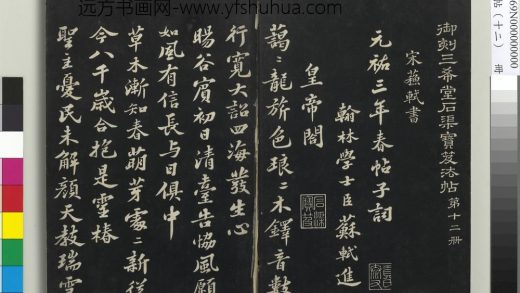 远方书画网-www.yfshuhua.com
69N00000000000
帖（十二） 冊
御刻三希堂石渠寶笈法帖 第十二冊
宋蘇軾書
元祐三年春帖子詞
翰林學士臣蘇軾進
皇帝閣
藹〻龍旂色琅〻木鐸音數
行寬大詔四海發生心
暘谷賓初日清臺告協風願
如風有信長與日俱中
草木漸知春萌芽處〻新從
今八千歲合抱是靈椿
聖主憂民未解顏天教瑞雪